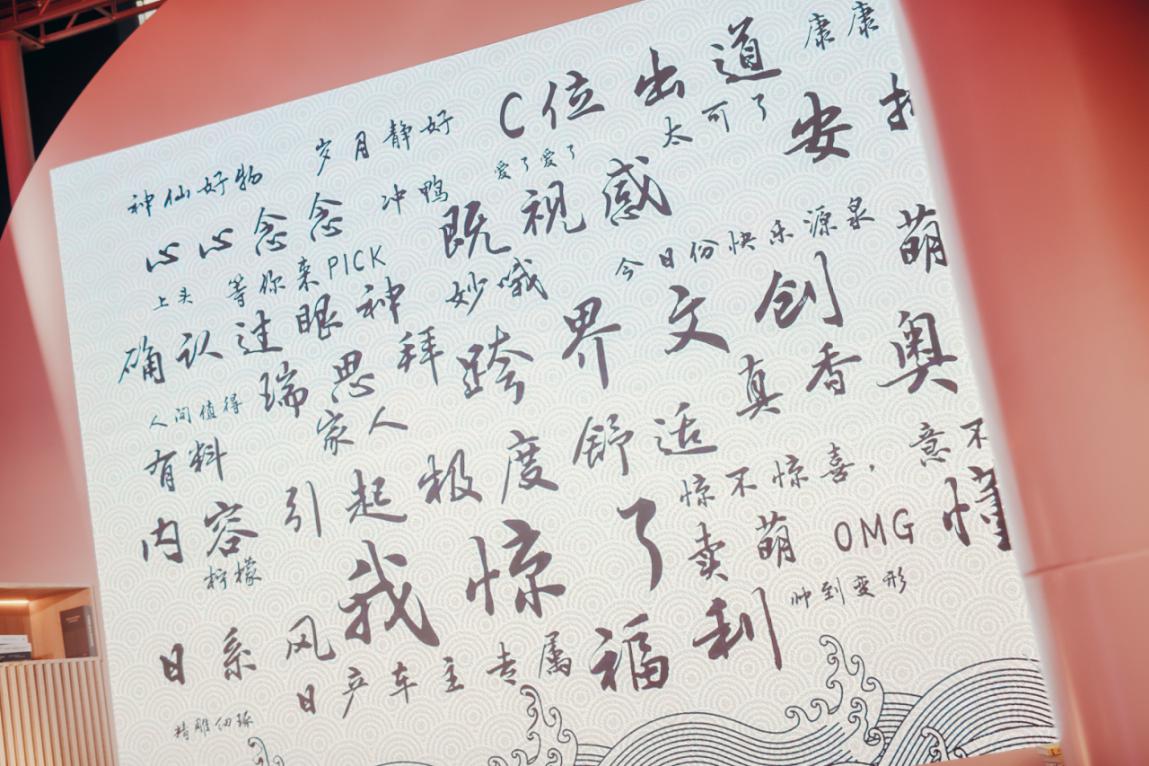 C位出道
康康
岁月静好
太可了
安排
神仙好物
爱了爱了
冲鸭
既视感
心心念念
今日份快乐源泉
萌
上头
等你来PICK
妙哦
跨界文创
确认过眼神
瑞思拜
真香
奥
人间值得
家人
有料
引起极度舒适
惊不惊喜，意不
内容
柠檬
我惊了
卖萌
OMG
懂
日系风
福利
帅到变形
日产车主专属
精雕细琢